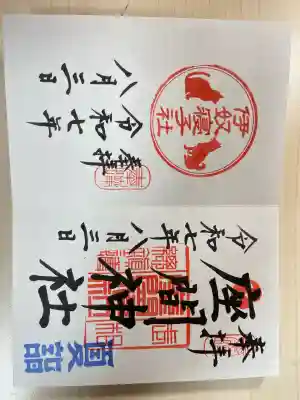 伊奴寝子社
奉拝
令和七年
八月三日
奉拝
座間神社
令和七年八月三日
夏詣